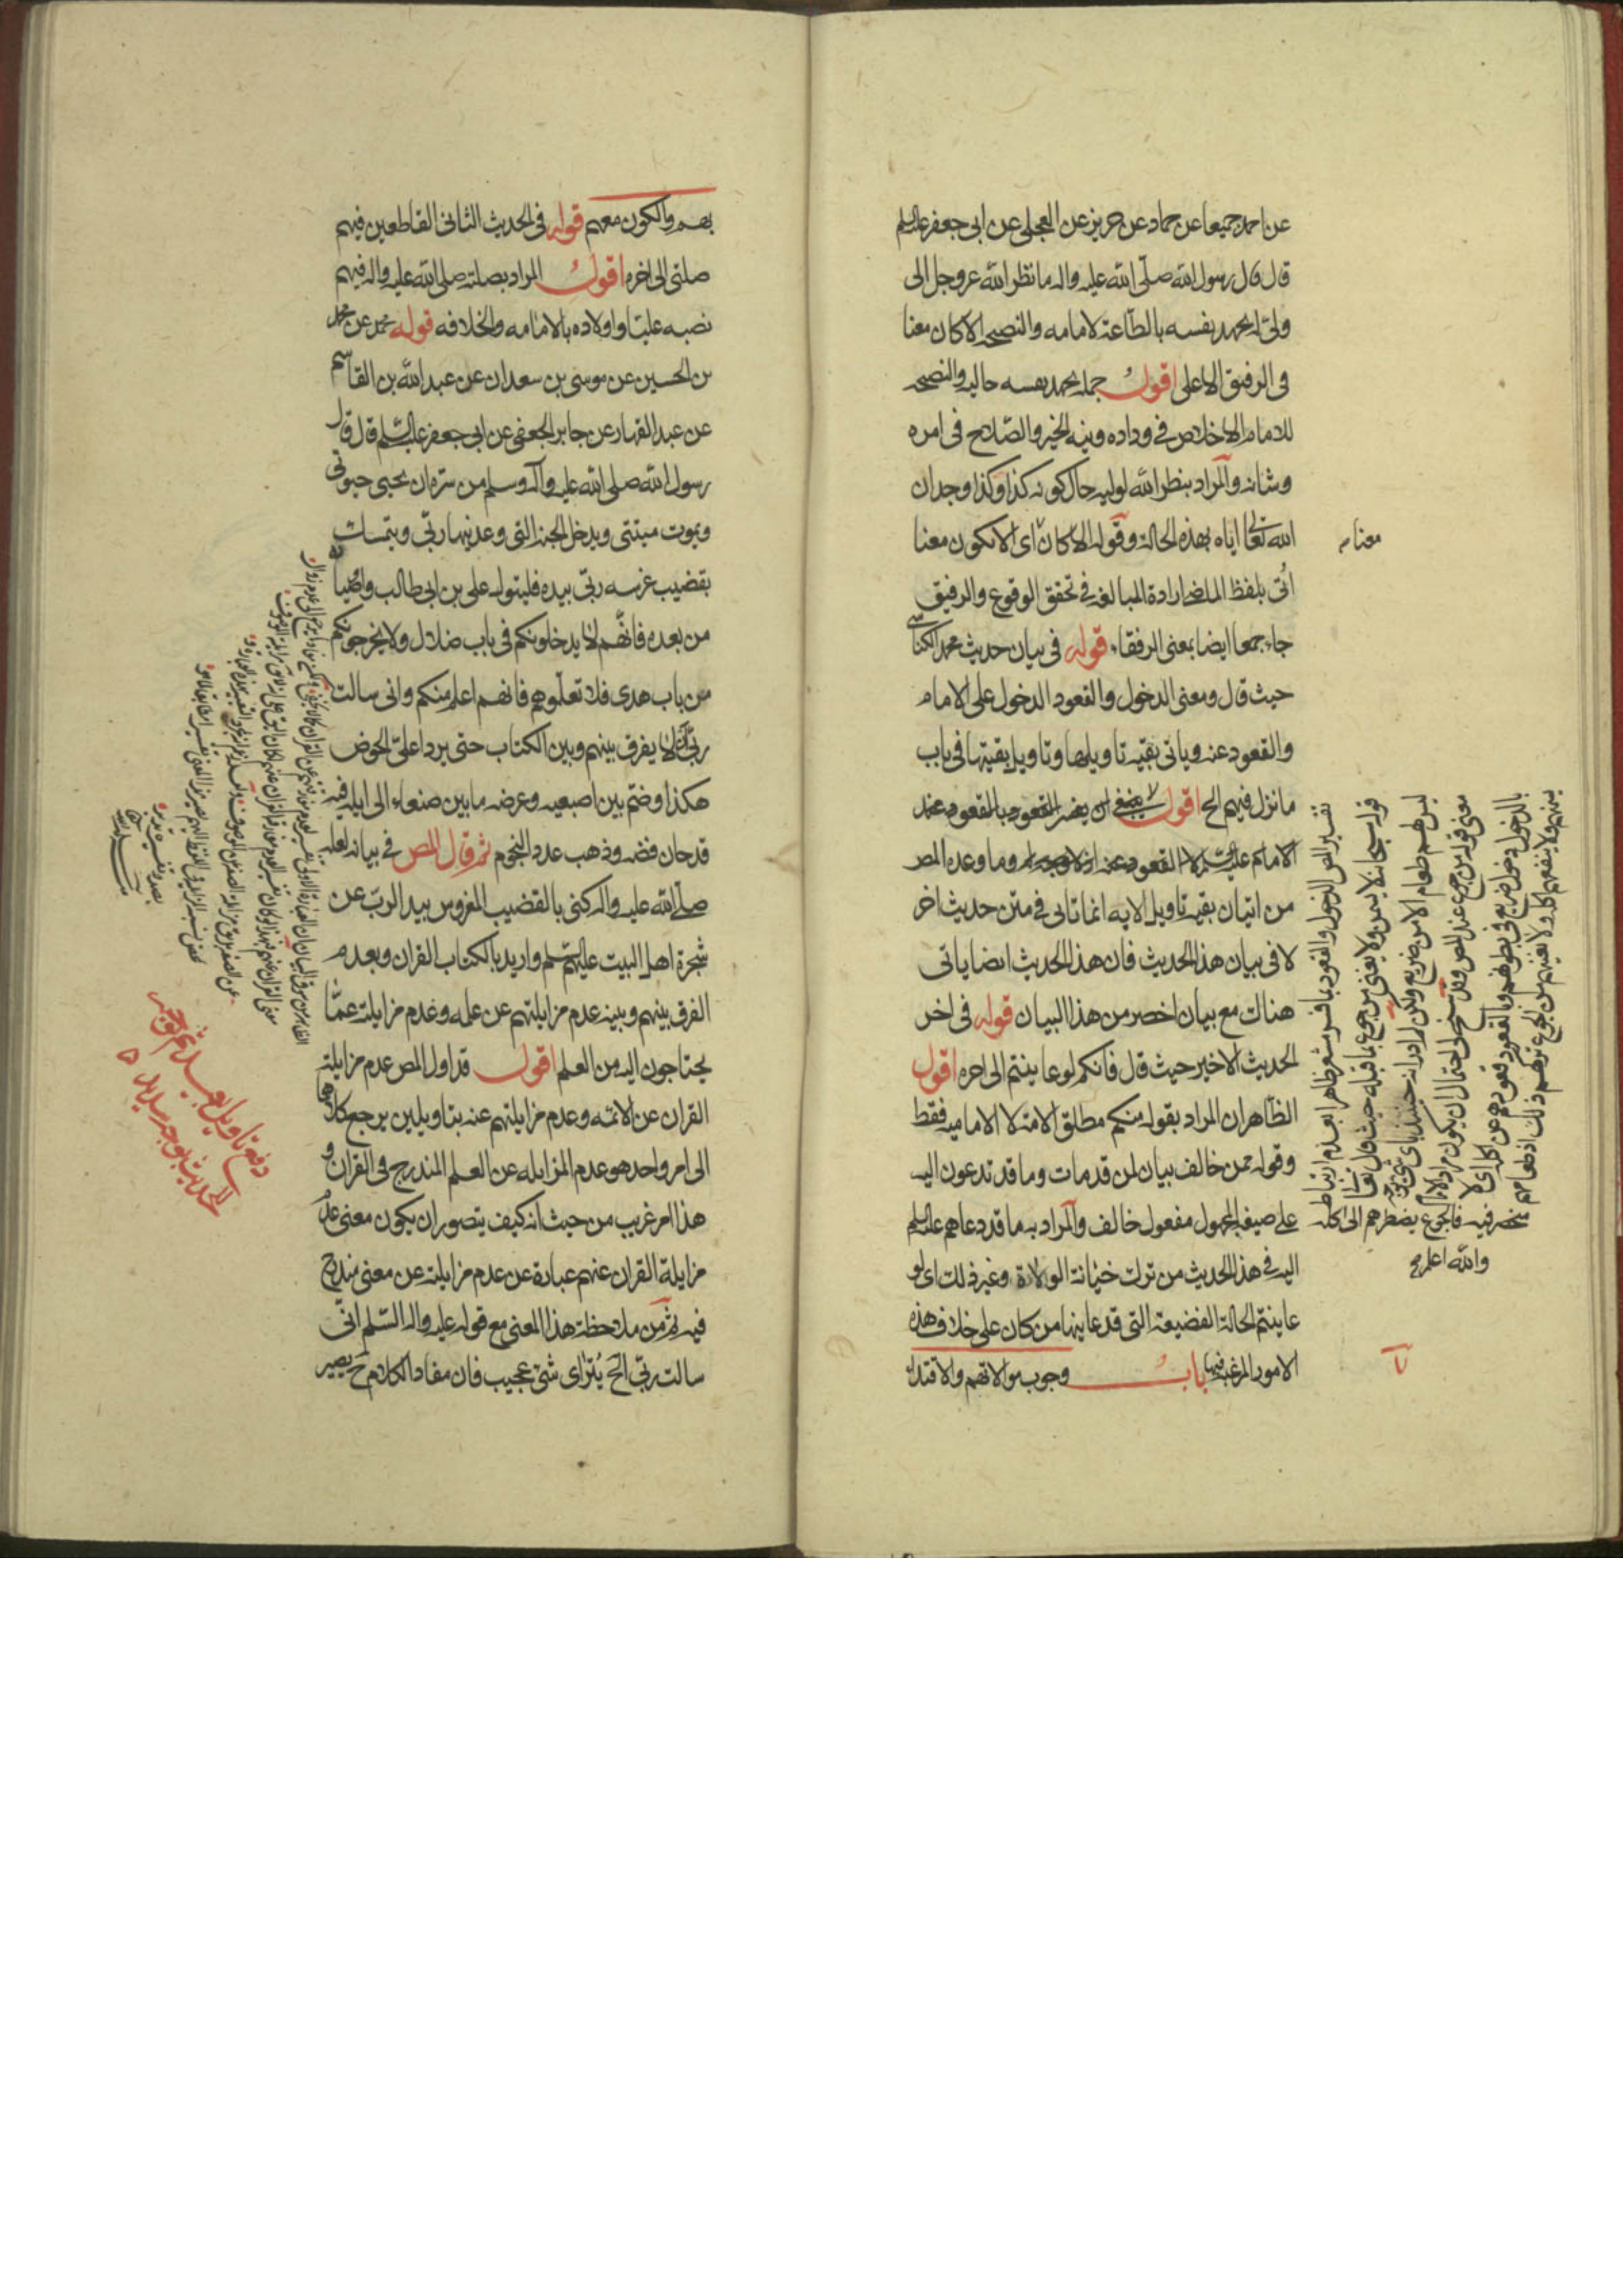 عن احمد جميعا عن حماد عن حريز عن العجلى عن ابى جعفر عليه السلم
قال قال رسول الله صلى الله عليه واله ما نظر الله عز وجل الى
ولى له يجهد نفسه بالطاعة لامامه والنصيحه الا كان معنا
فى الرفيق الاعلى اقول جمله يجهد نفسه حاليه والنصيحه
للامام الاخلاص فى وداده ونيه الخير والصلاح فى امره
وشانه والمراد بنظر الله لوليه حال كونه كذا وكذا وجدان
الله تعالى اياه بهذه الحالة وقوله الا كان اى الا يكون معنا
معنا
اتى بلفظ الماضى ارادة المبالغه فى تحقق الوقوع والرفيق
جاء جمعا ايضا بمعنى الرفقاء قوله فى بيان حديث محمد الكناسى
حيث قال ومعنى الدخول والقعود الدخول على الامام
والقعود عنه وياتى بقيه تاويلها وتاويل بقيتها فى باب
ما نزل فيهم الخ اقول لا ينبغى ان يفسر القعود بالقعود عند
الامام عليه السلم القعود عنه وما وعده المص
من اتيان بقيه تاويل الايه انما تاتى فى متن حديث اخر
لا فى بيان هذا الحديث فان هذا الحديث ايضا ياتى
هناك مع بيان اخصر من هذا البيان قوله فى اخر
الحديث الاخير حيث قال فانكم لو عاينتم الى اخره اقول
الظاهر ان المراد بقوله منكم مطلق الامة لا الاماميه فقط
وقوله ممن خالف بيان لمن قد مات وما قد تدعون اليه
على صيغه المجهول مفعول خالف والمراد به ما قد دعاهم عليه السلم
اليه فى هذا الحديث من ترك خيانة الولاة وغير ذلك اى لو
عاينتم الحالة الفضيعة التى قد عاينها من كان على خلاف هذه
الامور المرغب فيها باب وجوب موالاتهم والاقتداء
تفسير المص الدخول والقعود بما فسر مشعر ظاهرا بعدم ارتباط
قوله سبحانه لا يسمن ولا يغنى من جوع بما قبله حيث قال تعالى
ليس لهم طعام الا من ضريع ولكن لم ادر انه حينئذ باى شى
معنى قوله من جوع عند المص وقد سنح لى احتمال ان يكون مراد الامام
بالدخول دخول ضريع فى بطونهم وبالقعود قعودهم عن اكله اى لا
يسمنهم ولا ينفعهم اكله ولا يغنيهم من الجوع تركهم ذلك اذ طعامهم
منحصر فيه فالجوع يضطرهم الى اكله
والله اعلم
بهم والكون معهم قوله فى الحديث الثانى القاطعين فيهم
صلتى الى اخره اقول المراد بصلته صلى الله عليه واله فيهم
نصبه عليا واولاده بالامامه والخلافه قوله محمد عن محمد
بن الحسين عن موسى بن سعدان عن عبد الله بن القاسم
عن عبد القهار عن جابر الجعفى عن ابى جعفر عليه السلم قال قال
رسول الله صلى الله عليه وآله وسلم من سره ان يحيى حيوتى
ويموت ميتتى ويدخل الجنة التى وعدنيها ربى ويتمسك
بقضيب غرسه ربى بيده فليتول على بن ابى طالب واوصيا
من بعده فانهم لا يدخلونكم فى باب ضلال ولا يخرجونكم
من باب هدى فلا تعلموهم فانهم اعلم منكم وانى سالت
ربى ان لا يفرق بينهم وبين الكتاب حتى يردا على الحوض
هكذا وضم بين اصبعيه وعرضه ما بين صنعاء الى ايله فيه
قدحان فضه وذهب عدد النجوم ثم قال المص فى بيانه لعله
صلى الله عليه واله كنى بالقضيب المغروس بيد الرب عن
شجرة اهل البيت عليهم السلم واريد بالكتاب القران وبعدم
الفرق بينهم وبينه عدم مزايلتهم عن علمه وعدم مزايلته عما
يحتاجون اليه من العلم اقول قد اول المص عدم مزايلة
القران عن الائمه وعدم مزايلتهم عنه بتاويلين يرجع كلاهما
الى امر واحد هو عدم المزايله عن العلم المندرج فى القران و
هذا امر غريب من حيث انه كيف يتصور ان يكون معنى عدم
مزايلة القران عنهم عبارة عن عدم مزايلته عن معنى مندرج
فيه ثم من ملاحظة هذا المعنى مع قوله عليه واله السلم انى
سالت ربى الخ يترائ شئ عجيب فان مفاد الكلام ح يصير
دفع تاويل بعيد غير موجه
لحديث بوجه سديد